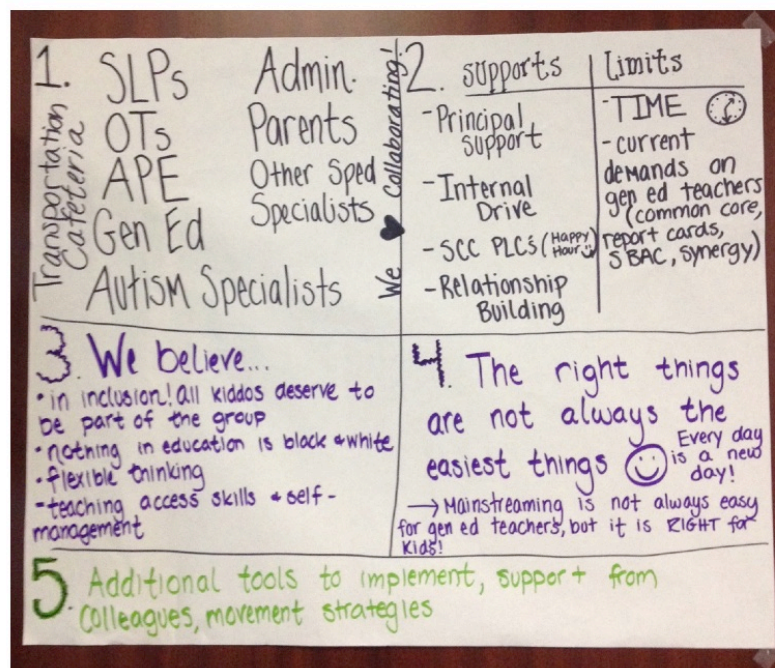 1.
Transportation
Cafeteria
SLPs
OTs
APE
Gen Ed
Autism Specialists
Admin.
Parents
Other Sped
Specialists
We ♥ Collaborating!
2.
supports
-Principal
support
-Internal
Drive
-SCC PLC's (Happy
Hour☺)
-Relationship
Building
limits
-TIME
-current
demands on
gen ed teachers
(common core,
report cards,
SBAC, synergy)
3. We believe...
• in inclusion! all kiddos deserve to
be part of the group
• nothing in education is black & white
• flexible thinking
-teaching access skills & self-
management
4. The right things
are not always the
easiest things ☺
Every day
is a new
day!
→ Mainstreaming is not always easy
for gen ed teachers, but it is RIGHT for
kids!
5. Additional tools to implement, support from
colleagues, movement strategies